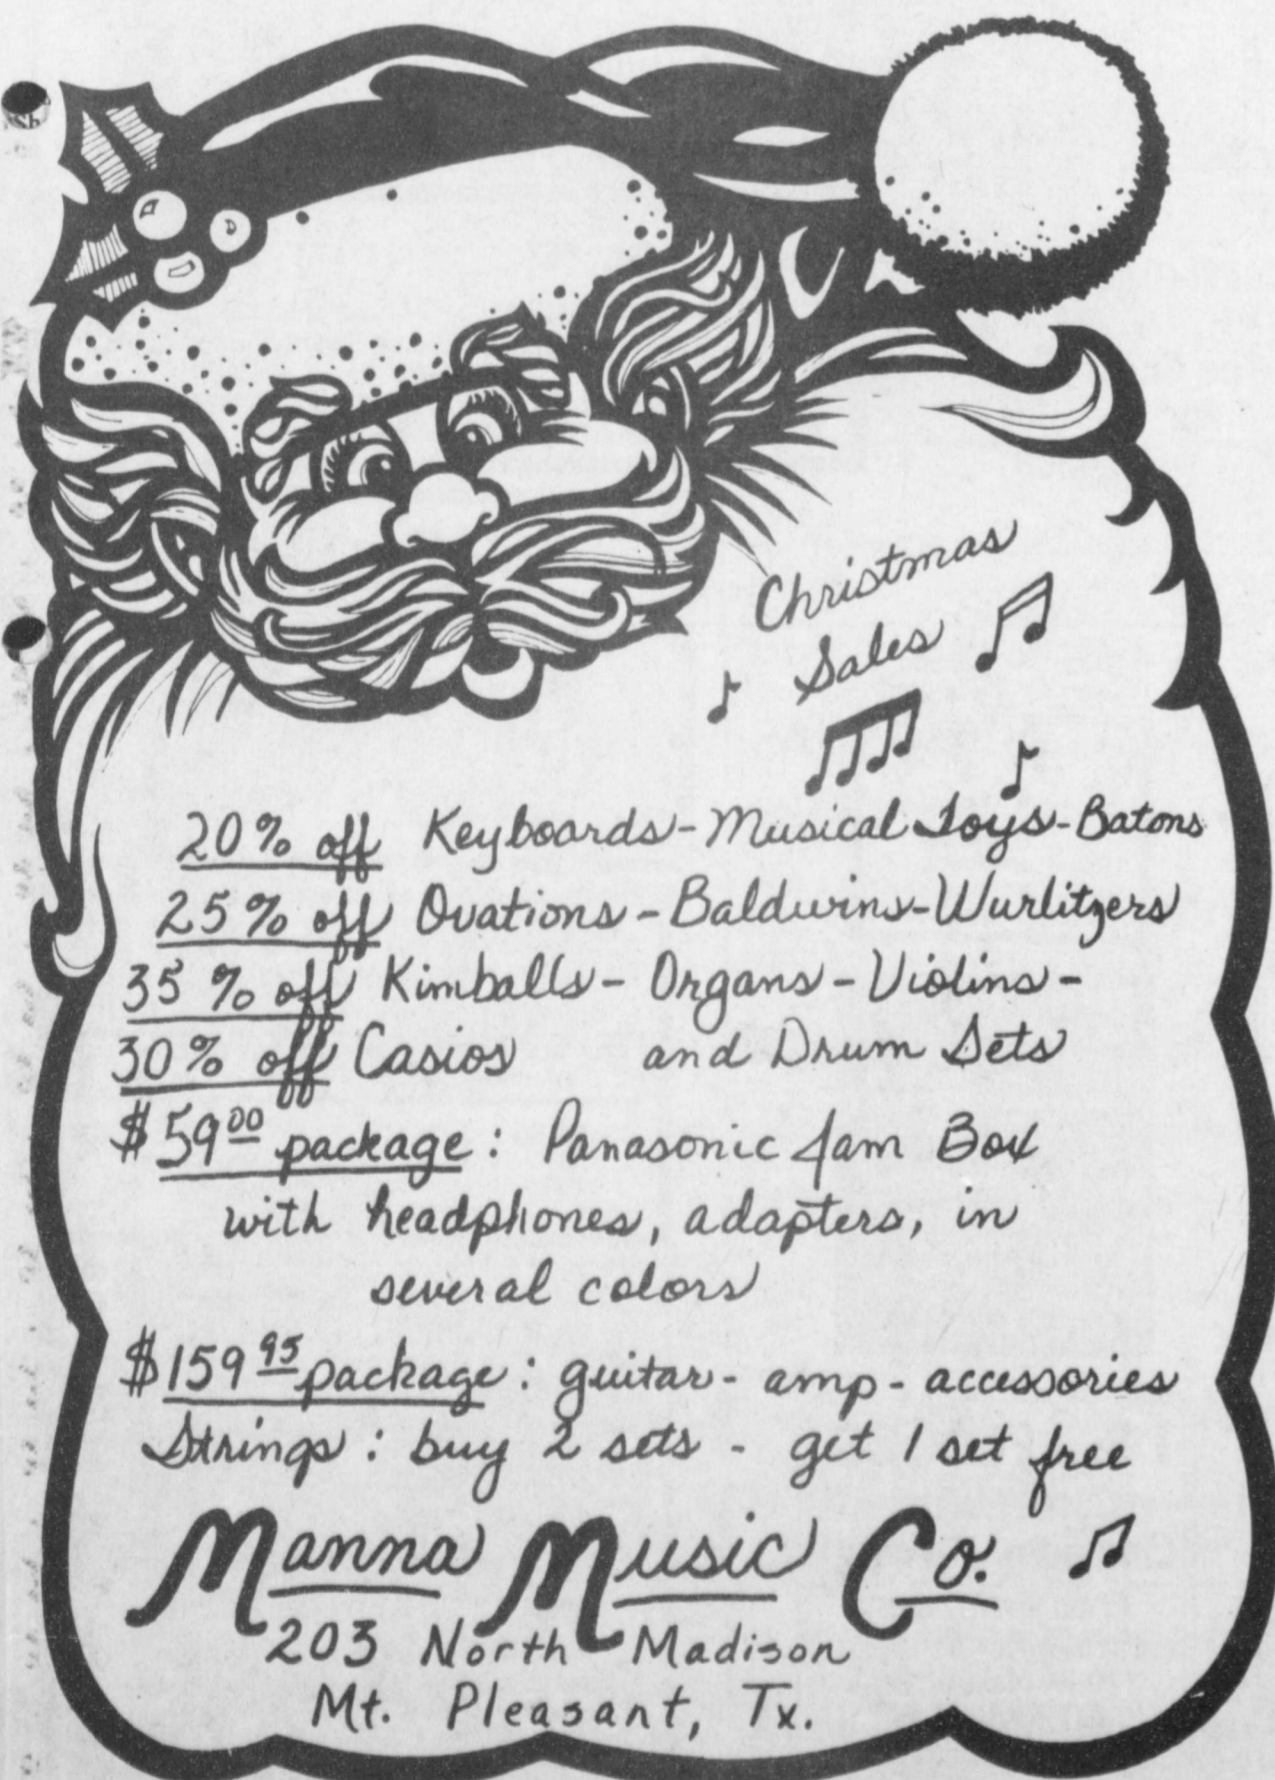 Christmas
Sales
20% off Keyboards - Musical Toys - Batons
25% off Ovations - Baldwins - Wurlitzers
35% off Kimballs - Organs - Violins -
30% off Casios and Drum Sets
$59.00 package: Panasonic Jam Box
with headphones, adapters, in
several colors
$159.95 package: guitar - amp - accessories
Strings: buy 2 sets - get 1 set free
Manna Music Co.
203 North Madison
Mt. Pleasant, Tx.